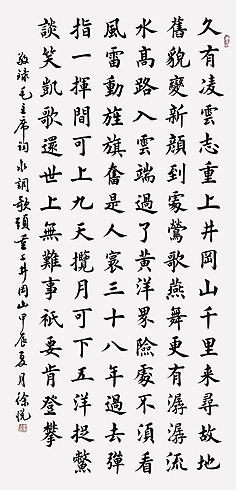 久有凌雲志重上井岡山千里来尋故地
舊貌變新顏到處鶯歌燕舞更有潺潺流
水高路入雲端過了黃洋界險處不須看
風雷動旌旗奮是人寰三十八年過去彈
指一揮間可上九天攬月可下五洋捉鱉
談笑凱歌還世上無難事祇要肯登攀
敬録毛主席詞水調歌頭重上井岡山甲辰夏月徐悦